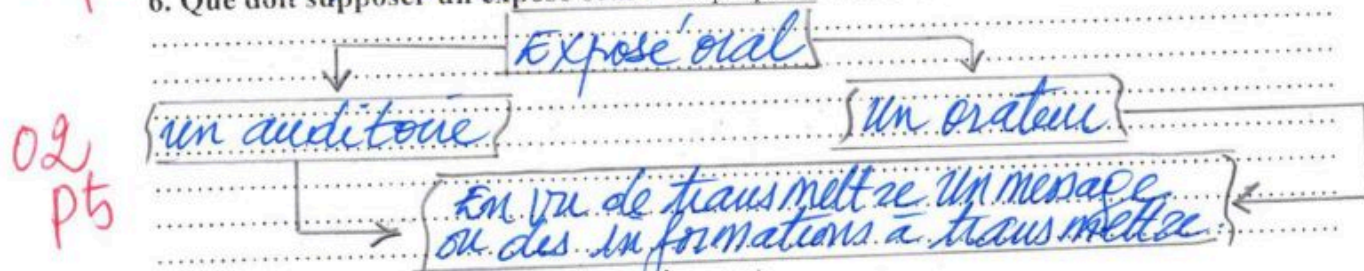 6. Que doit supposer un exposé
Exposé oral
un auditoire
un orateur
02
pts
En vu de transmettre un message
ou des informations à transmettre.